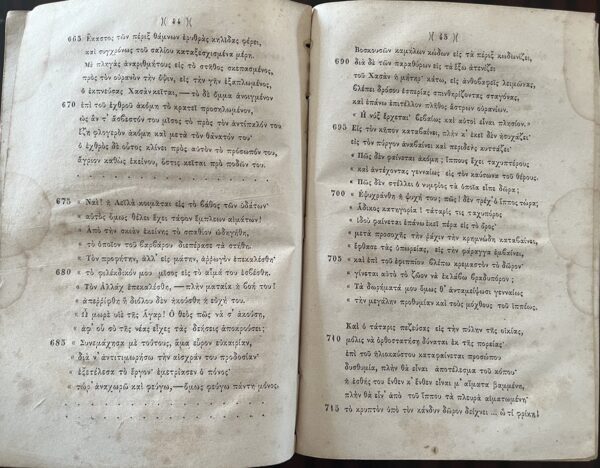 )( 44 )(
665 Ἕκαστος τῶν πέριξ θάμνων ἐρυθρὰς κηλῖδας φέρει,
καὶ συγχρόνως τοῦ σαλίου κατεξεσχισμένα μέρη.
Μὲ πληγὰς ἀναριθμήτους εἰς τὸ στῆθος σκεπασμένος,
πρὸς τὸν οὐρανὸν τὴν ὄψιν, εἰς τὴν γῆν ἐξαπλωμένος,
ὁ ἐκπνεύσας Χασὰν κεῖται, — τὸ δὲ ὄμμα ἀνοιγμένον
670 ἐπὶ τοῦ ἐχθροῦ ἀκόμη τὸ κρατεῖ προσηλωμένον,
ὡς ἂν τ' ἄσβεστόν του μῖσος τὸ πρὸς τὸν ἀντίπαλόν του
ἔζη φλογερὸν ἀκόμη καὶ μετὰ τὸν θάνατόν του·
ὁ ἐχθρὸς δὲ οὗτος κλίνει πρὸς αὐτὸν τὸ πρόσωπόν του,
ἄγριον καθὼς ἐκείνου, ὅστις κεῖται πρὸ ποδῶν του.
675 « Ναί! ἡ Λεϊλὰ κοιμᾶται εἰς τὸ βάθος τῶν ὑδάτων·
« αὐτὸς ὅμως θέλει ἔχει τάφον ἔμπλεων αἱμάτων!
« Ἀπὸ τὴν σκιὰν ἐκείνης τὸ σπαθίον ὡδηγήθη,
« τὸ ὁποῖον τοῦ βαρβάρου διεπέρασε τὰ στήθη.
« Τὸν προφήτην, ἀλλ' εἰς μάτην, ἀρρωγὸν ἐπεκαλέσθη·
680 « τὸ φιλέκδικόν μου μῖσος εἰς τὸ αἷμά του ἐσβέσθη.
« Τὸν Ἀλλὰχ ἐπεκαλέσθη, — πλὴν ματαία ἡ βοή του!
« ἀπερρίφθη ἢ διόλου δὲν ἠκούσθη ἡ εὐχή του.
« Ὦ μωρὲ υἱὲ τῆς Ἄγαρ! Ὁ θεὸς πῶς νὰ σ' ἀκούσῃ,
« ἀφ' οὗ σὺ τῆς νέας εἶχες τὰς δεήσεις ἀποκρούσει;
685 « Συνεμάχησα μὲ τούτους, ἅμα εὗρον εὐκαιρίαν,
« διὰ ν' ἀντιτιμωρήσω τὴν αἰσχράν του προδοσίαν·
« ἐξετέλεσα τὸ ἔργον· ἐμετρίασεν ὁ πόνος·
« τώρ' ἀναχωρῶ καὶ φεύγω, — ὅμως φεύγω πάντη μόνος.
)( 45 )(
Βοσκουσῶν καμήλων κώδων εἰς τὰ πέριξ κωδωνίζει,
690 διὰ δὲ τῶν παραθύρων εἰς τὰ ἔξω ἀτενίζει
τοῦ Χασὰν ἡ μήτηρ· κάτω, εἰς ἀνθοβαφεῖς λειμῶνας,
βλέπει δρόσου ἑσπερίας σπινθηρίζοντας σταγόνας,
καὶ ἐπάνω ἐπιτέλλον πλῆθος ἄστρων οὐρανίων.
« Ἡ νὺξ ἔρχεται· βεβαίως καὶ αὐτοὶ εἶναι πλησίον.»
695 Εἰς τὸν κῆπον καταβαίνει, πλὴν κ' ἐκεῖ δὲν ἡσυχάζει·
εἰς τὸν πύργον ἀναβαίνει καὶ περιδεὴς κυττάζει·
« Πῶς δὲν φαίνεται ἀκόμη; ἵππους ἔχει ταχυπτέρους
« καὶ ἀντέχοντας γενναίως εἰς τὸν καύσωνα τοῦ θέρους.
« Πῶς δὲν στέλλει ὁ νυμφίος τὰ ὁποῖα εἶπε δῶρα;
700 « Ἐψυχράνθη ἡ ψυχή του; πῶς! δὲν τρέχ' ὁ ἵππος τώρα;
« Ἄδικος κατηγορία! τάταρίς τις ταχυπόρος
« ἰδοὺ φαίνεται ἐπάνω ἐκεῖ πέρα εἰς τὸ ὄρος·
« μετὰ προσοχῆς τὴν ῥάχιν τὴν κρημνώδη καταβαίνει,
« ἔφθασε τὰς ὑπωρείας, εἰς τὴν φάραγγα ἐμβαίνει,
705 « καὶ ἐπὶ τοῦ ἐφιππίου βλέπω κρεμαστὸν τὸ δῶρον·
« γίνεται αὐτὸ τὸ ζῶον νὰ ἐκλάβω βραδυπόρον;
« Τὰ δωρήματά μου ὅμως θ' ἀνταμείψωσι γενναίως
« τὴν μεγάλην προθυμίαν καὶ τοὺς μόχθους τοῦ ἱππέως.
Καὶ ὁ τάταρις πεζεύσας εἰς τὴν πύλην τῆς οἰκίας,
710 μόλις νὰ ὀρθοστατήσῃ δύναται ἐκ τῆς πορείας·
ἐπὶ τοῦ ἡλιοκαύστου καταφαίνεται προσώπου
δυσθυμία, πλὴν θὰ εἶναι ἀποτέλεσμα τοῦ κόπου·
ἡ ἐσθής του ἔνθεν κ' ἔνθεν εἶναι μ' αἵματα βαμμένη,
πλὴν θὰ εἶν' ἀπὸ τοῦ ἵππου τὰ πλευρὰ αἱματωμένη·
715 τὸ κρυπτὸν ὑπὸ τὸν κάνδυν δῶρον δείχνει ... ὢ τί φρίκη!